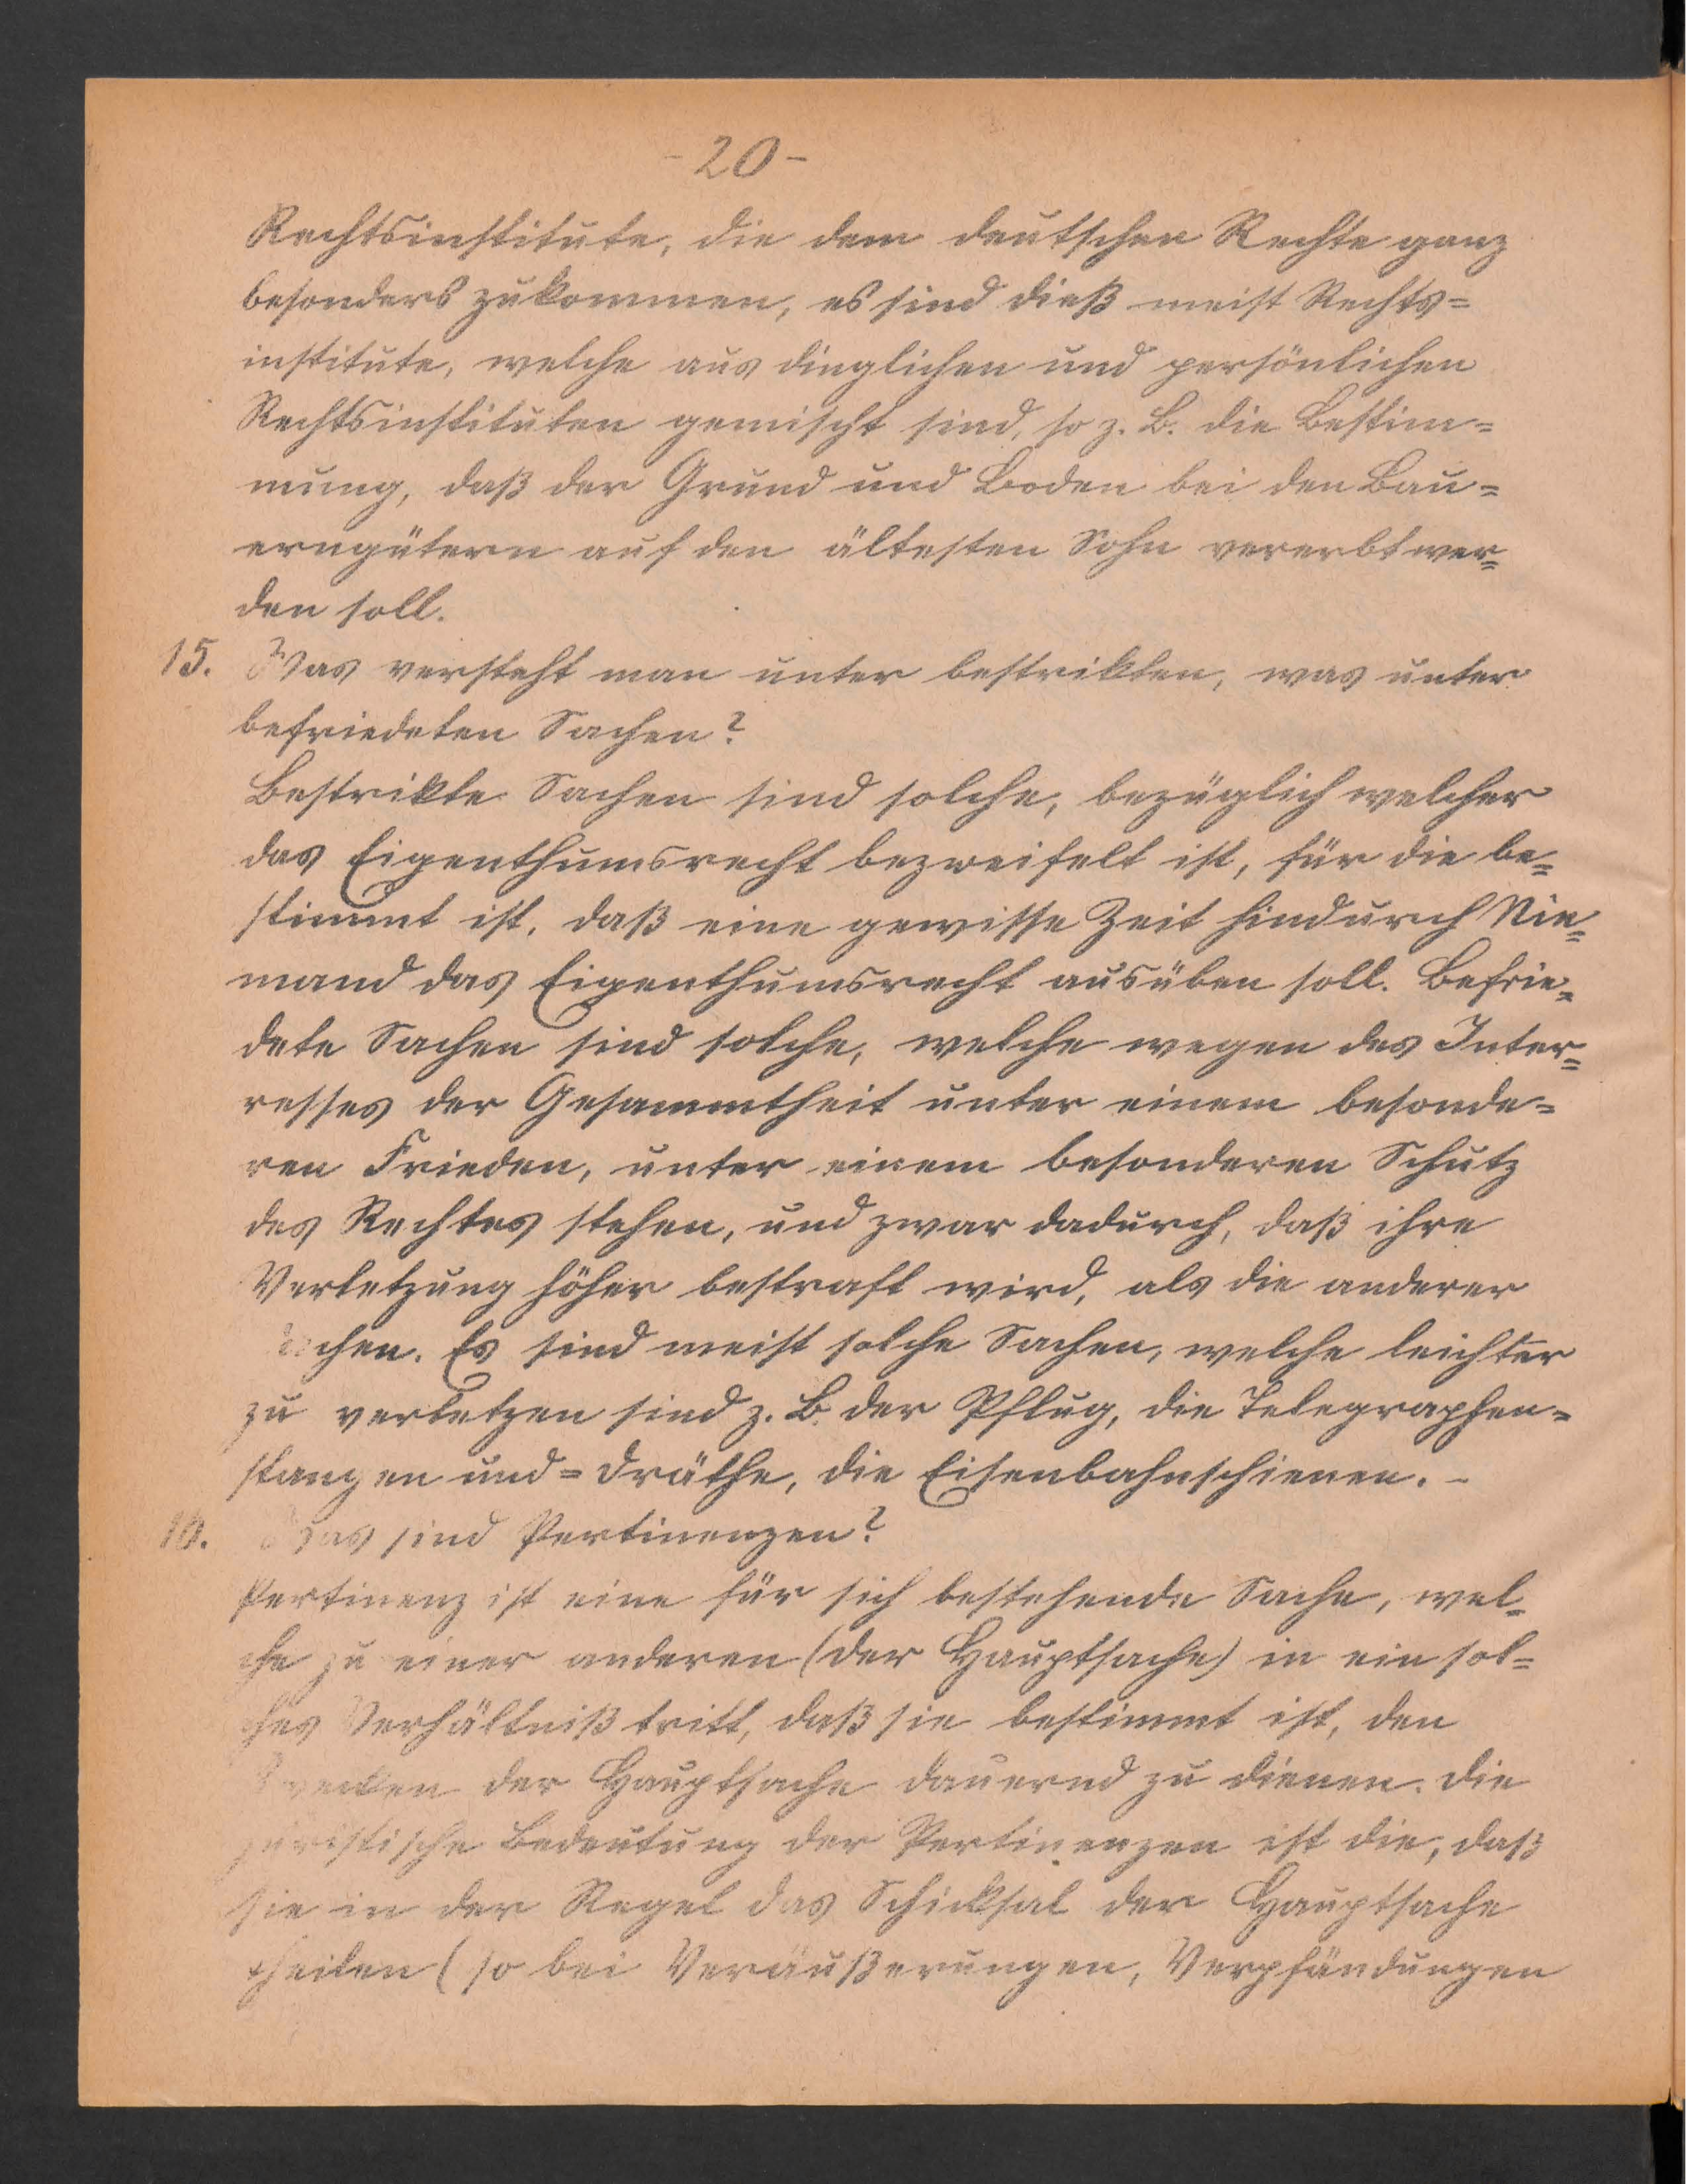 - 20 -
Rechtsinstitute, die dem deutschen Rechte ganz
besonders zukommen, es sind dieß meist Rechts=
institute, welche aus dinglichen und persönlichen
Rechtsinstituten gemischt sind, so z. B. die Bestim=
mung, daß der Grund und Boden bei den Bau=
erngütern auf den ältesten Sohn vererbt wer=
den soll.
15. Was versteht man unter bestrikten, was unter
befriedeten Sachen?
Bestrikte Sachen sind solche, bezüglich welcher
das Eigenthumsrecht bezweifelt ist, für die be=
stimmt ist, daß eine gewisse Zeit hindurch Nie=
mand das Eigenthumsrecht ausüben soll. Befrie=
dete Sachen sind solche, welche wegen des Inter=
resses der Gesammtheit unter einem besonde=
ren Frieden, unter einem besonderen Schutz
des Rechtes stehen, und zwar dadurch, daß ihre
Verletzung höher bestraft wird, als die anderer
Sachen. Es sind meist solche Sachen, welche leichter
zu verletzen sind z. B. der Pflug, die Telegraphen=
stangen und = Dräthe, die Eisenbahnschienen. -
16. Was sind Pertinenzen?
Pertinenz ist eine für sich bestehende Sache, wel=
che zu einer anderen (der Hauptsache) in ein sol=
ches Verhältniß tritt, daß sie bestimmt ist, den
Zwecken der Hauptsache dauernd zu dienen. Die
juristische Bedeutung der Pertinenzen ist die, daß
sie in der Regel das Schicksal der Hauptsache
theilen (so bei Veräußerungen, Verpfändungen